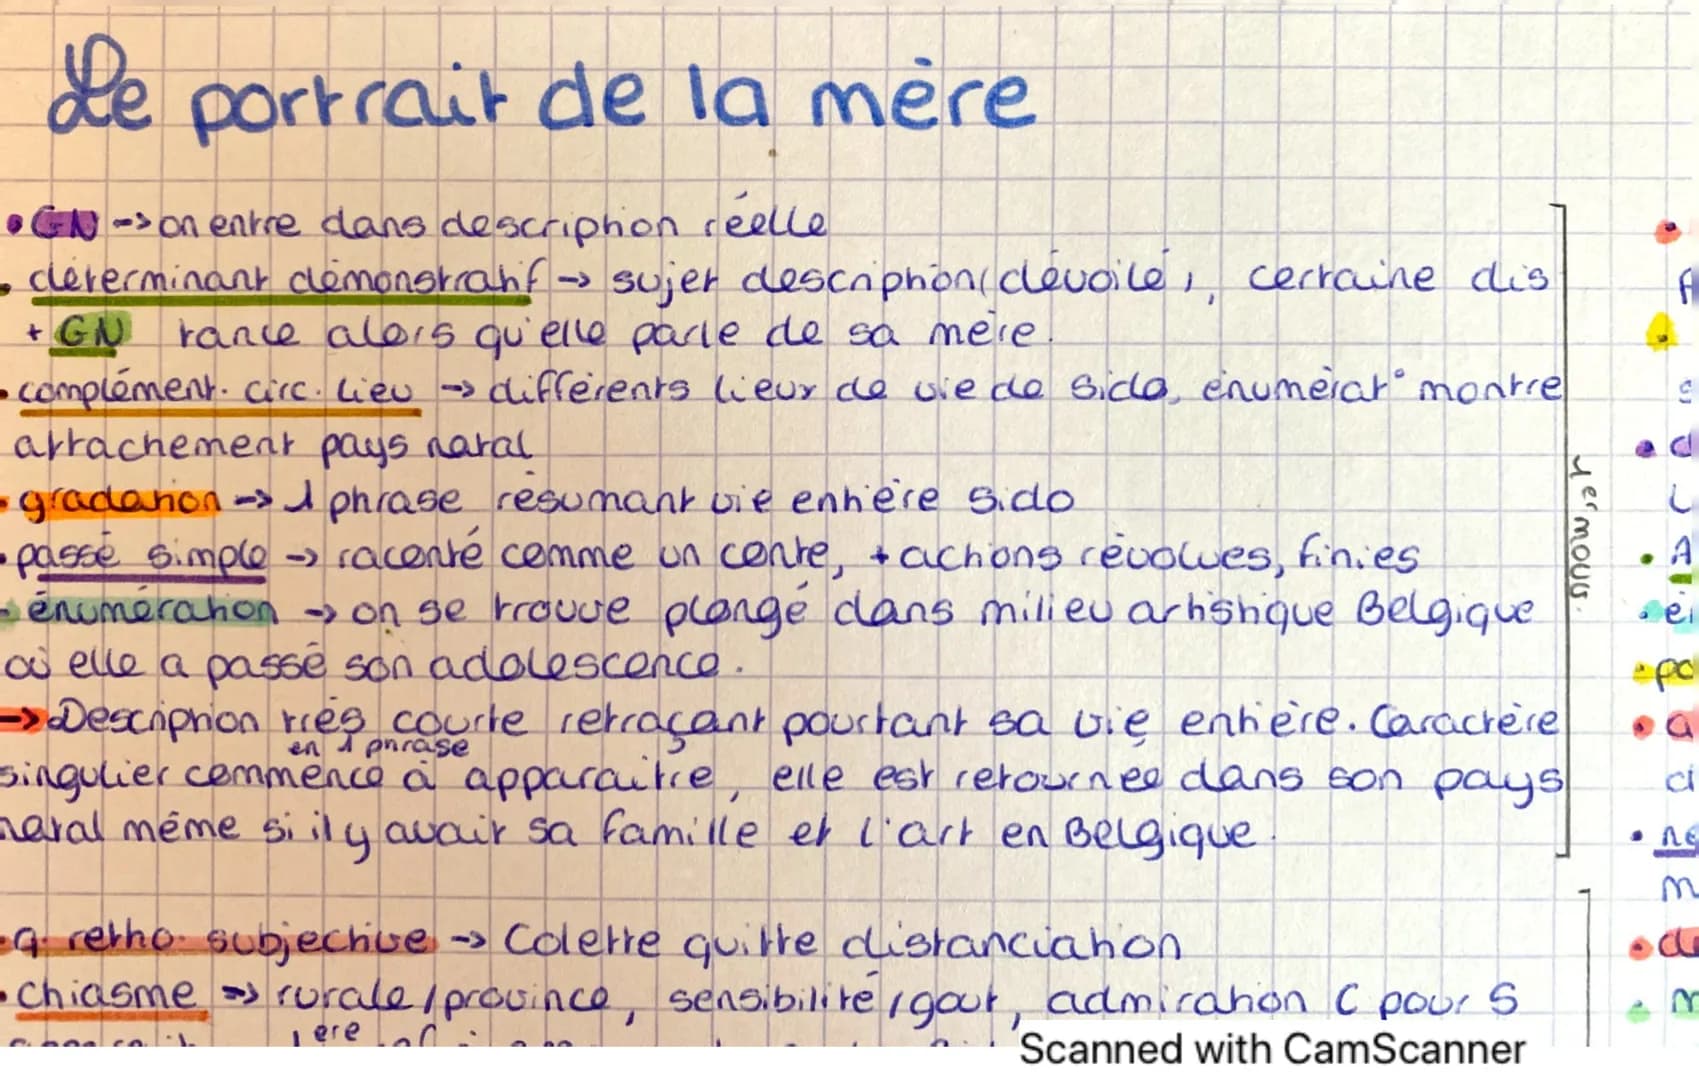 Le portrait de la mère
• GN -> on entre dans description réelle
• déterminant démonstratif -> sujet description (dévoilé), certaine dis
+ GN tance alors qu'elle parle de sa mère.
• complément. circ. lieu -> différents lieux de vie de Sido, énumérat° montre
attachement pays natal
• gradation -> 1 phrase résumant vie entière Sido
• passé simple -> raconté comme un conte, + actions révolues, finies
• énumération -> on se trouve plongé dans milieu artistique Belgique
où elle a passé son adolescence.
-> Description très courte retraçant pourtant sa vie entière. Caractère
en 1 phrase
singulier commence à apparaître, elle est retournée dans son pays
natal même si il y avait sa famille et l'art en Belgique.
1er mouv.
• q. retho. subjective -> Colette quitte distanciation
• chiasme -> rurale / province, sensibilité / gout, admiration C pour S
1ere
Scanned with CamScanner